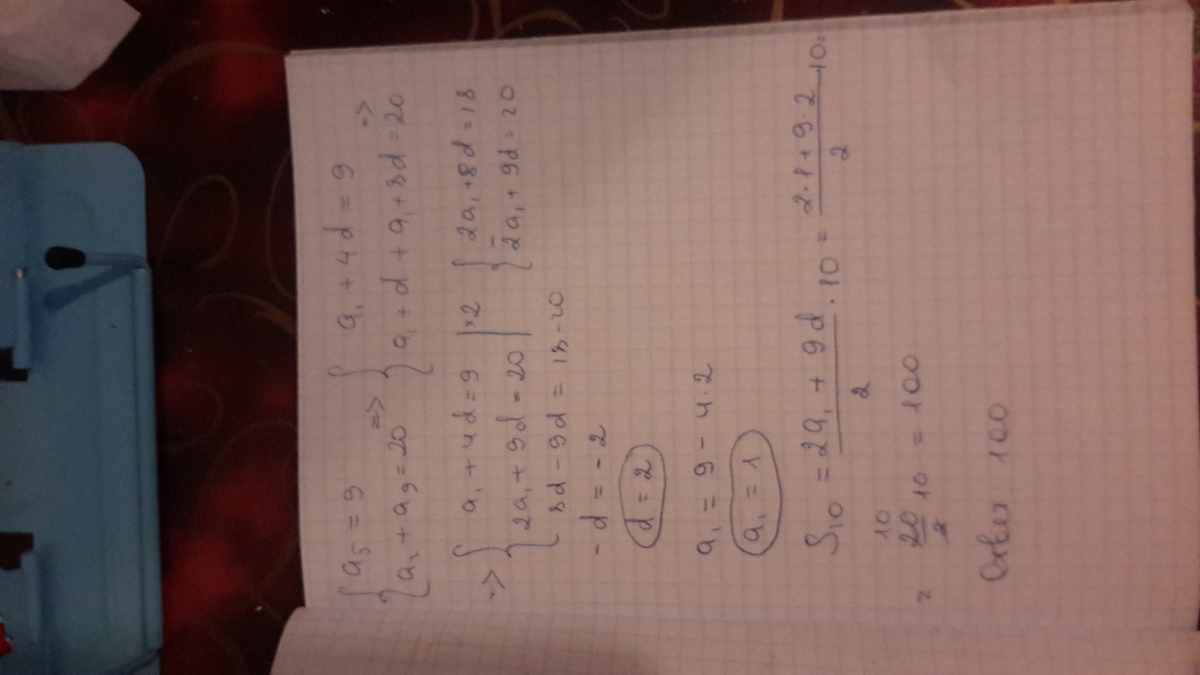 { a₅ = 9 => { a₁ + 4d = 9 =>
{ a₂ + a₉ = 20 { a₁ + d + a₁ + 8d = 20
=> { a₁ + 4d = 9 | ×2 { 2a₁ + 8d = 18
{ 2a₁ + 9d = 20 | { 2a₁ + 9d = 20
8d - 9d = 18 - 20
- d = - 2
d = 2
a₁ = 9 - 4 · 2
a₁ = 1
S₁₀ = (2a₁ + 9d)/2 · 10 = (2 · 1 + 9 · 2)/2 10 =
= 20/2 10 10 = 100
Ответ. 100